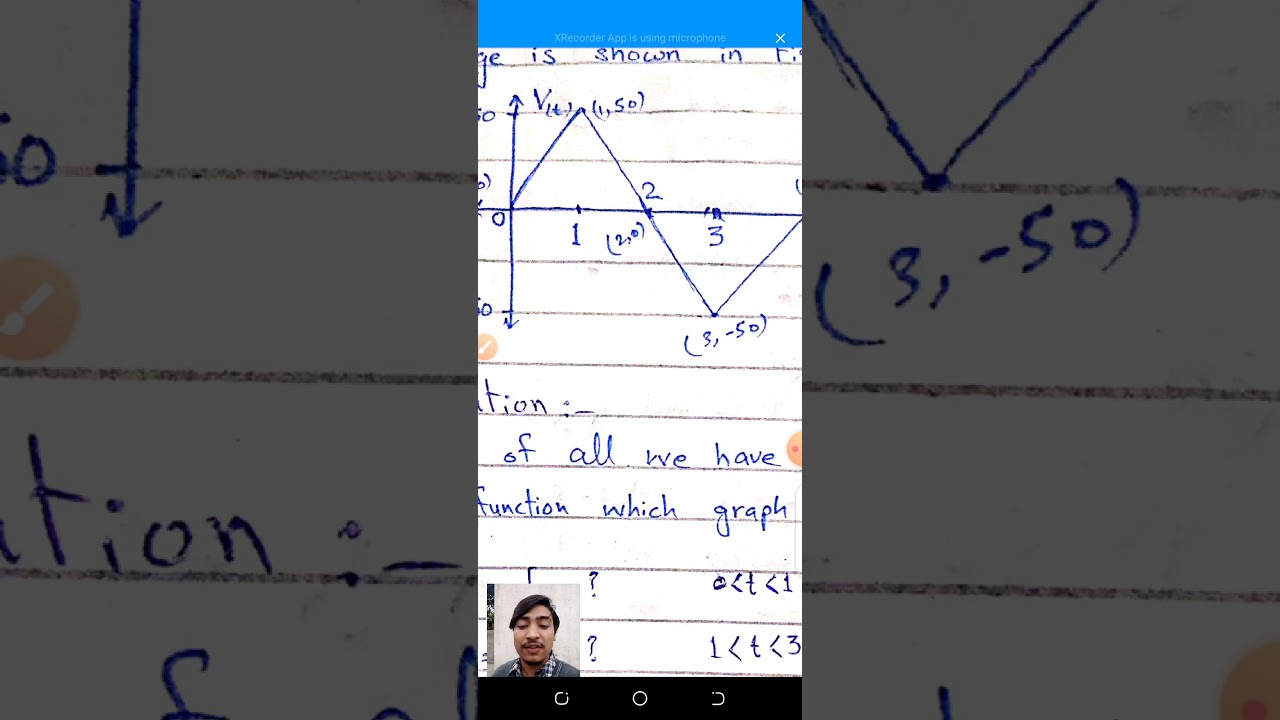 XRecorder App is using microphone
ge is shown in Fi
V(t) (1,50)
50
2
0
1
(2,0)
3
50
(3,-50)
(3,-50)
ation :-
of all we have
function which graph
? 0<t<1
= ? 1<t<3